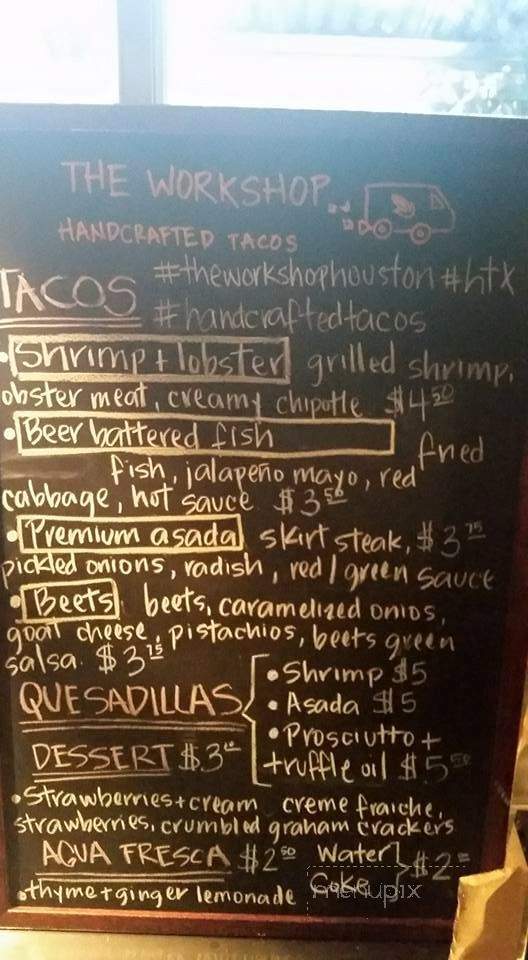 THE WORKSHOP
HANDCRAFTED TACOS
TACOS #theworkshophouston #htx
#handcraftedtacos
• Shrimp + lobster grilled shrimp,
lobster meat, creamy chipotle $4 50
• Beer battered fish fried
fish, jalapeño mayo, red
cabbage, hot sauce $3 50
• Premium asada skirt steak, $3 75
pickled onions, radish, red/green sauce
• Beets beets, caramelized onios,
goat cheese, pistachios, beets green
salsa. $3 75
QUESADILLAS
• Shrimp $5
• Asada $5
• Prosciutto +
truffle oil $5 50
DESSERT $3
• Strawberries + cream creme fraiche,
strawberries, crumbled graham crackers
AGUA FRESCA $2 50 Water
Coke $2
• thyme + ginger lemonade
menupix